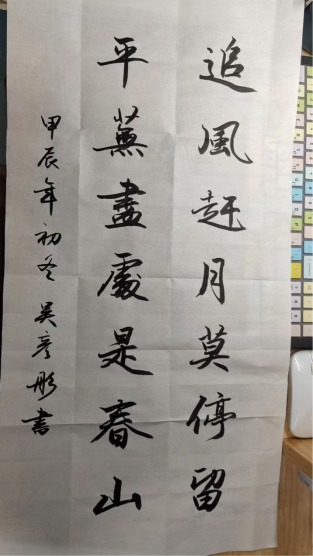 追風趕月莫停留
平蕪盡處是春山
甲辰年初冬吴彦彤書